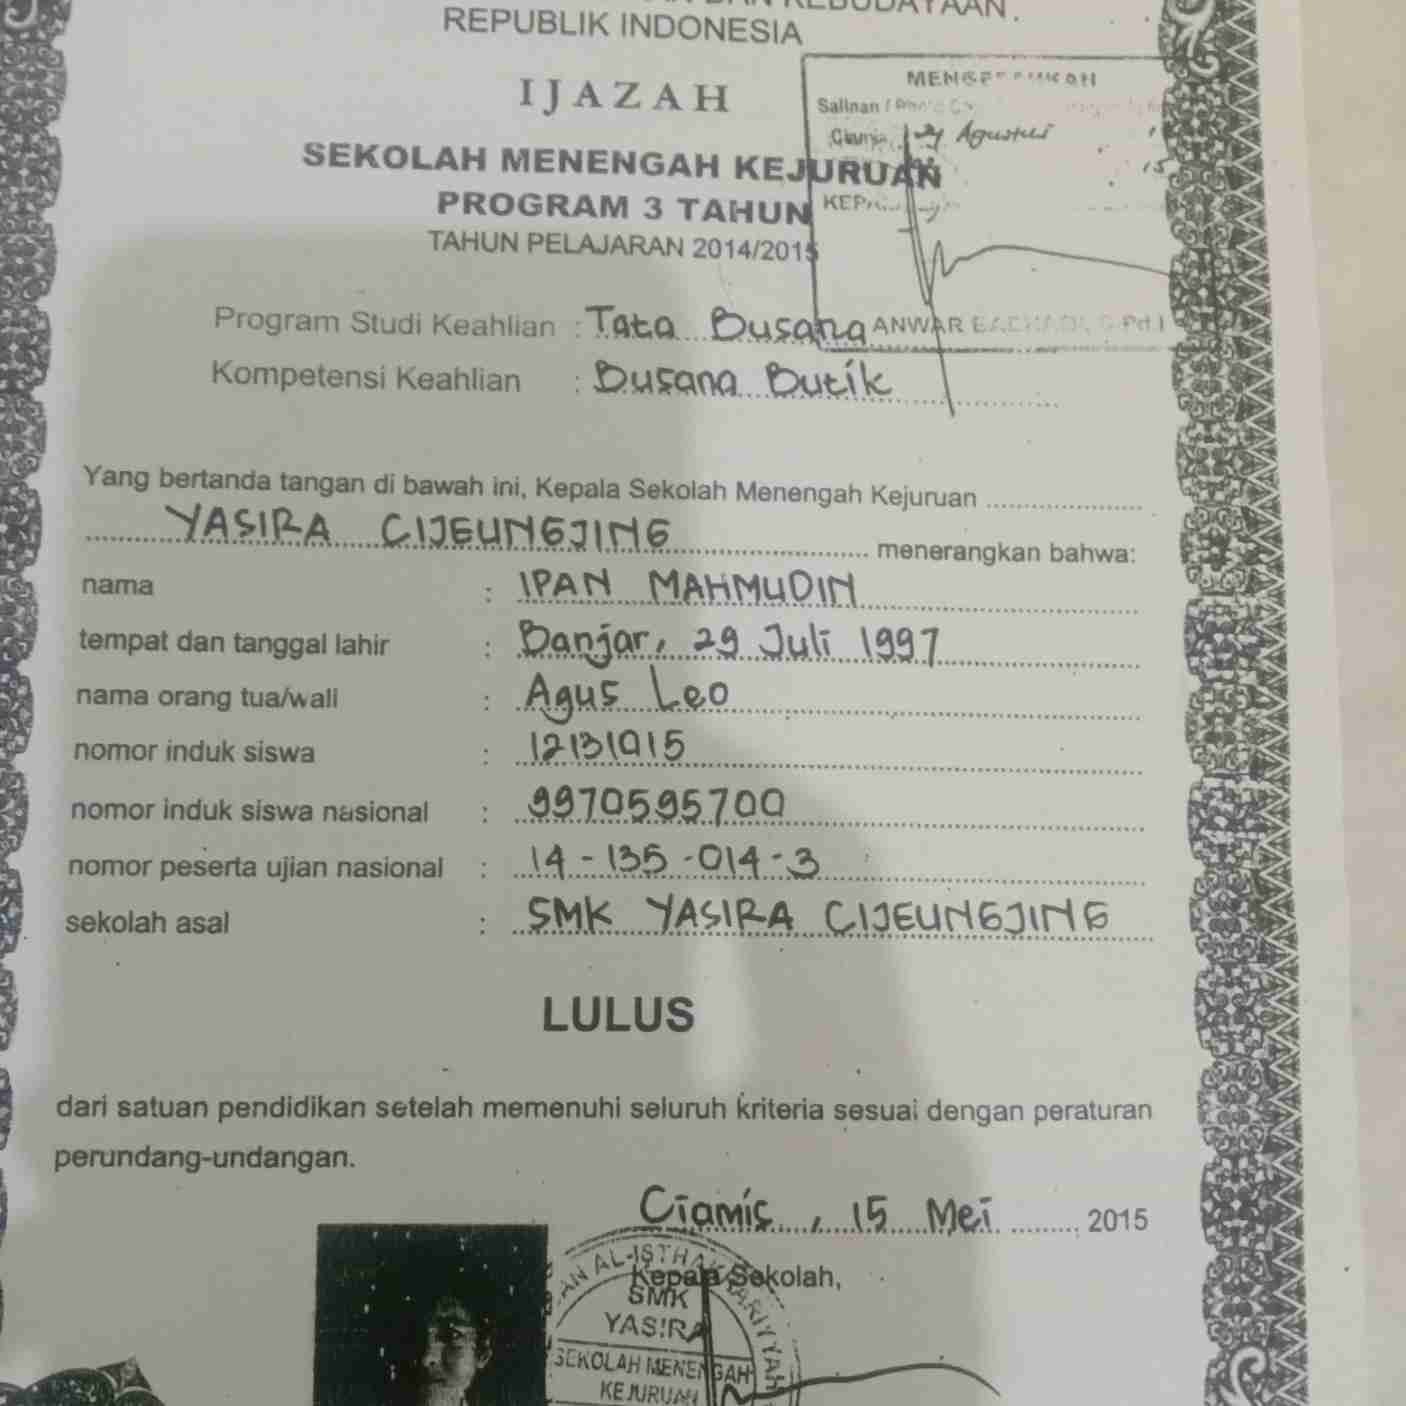 DAN KEBUDAYAAN
REPUBLIK INDONESIA
IJAZAH
SEKOLAH MENENGAH KEJURUAN
PROGRAM 3 TAHUN
TAHUN PELAJARAN 2014/2015
Salinan /
21 Agustus
15
ANWAR
Program Studi Keahlian : Tata Busana
Kompetensi Keahlian : Busana Butik
Yang bertanda tangan di bawah ini, Kepala Sekolah Menengah Kejuruan
YASIRA CIJEUNGJING menerangkan bahwa:
nama : IPAN MAHMUDIN
tempat dan tanggal lahir : Banjar, 29 Juli 1997
nama orang tua/wali : Agus Leo
nomor induk siswa : 12131015
nomor induk siswa nasional : 9970595700
nomor peserta ujian nasional : 14-135-014-3
sekolah asal : SMK YASIRA CIJEUNGJING
LULUS
dari satuan pendidikan setelah memenuhi seluruh kriteria sesuai dengan peraturan
perundang-undangan.
Ciamis, 15 Mei 2015
Kepala Sekolah,
SMK
YASIRA
SEKOLAH MENENGAH
KEJURUAN